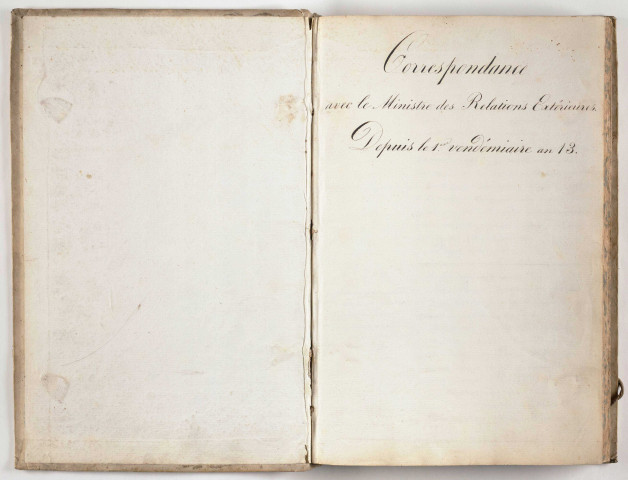 Correspondance
avec le Ministre des Relations Extérieures.
Depuis le 1er vendémiaire an 13.